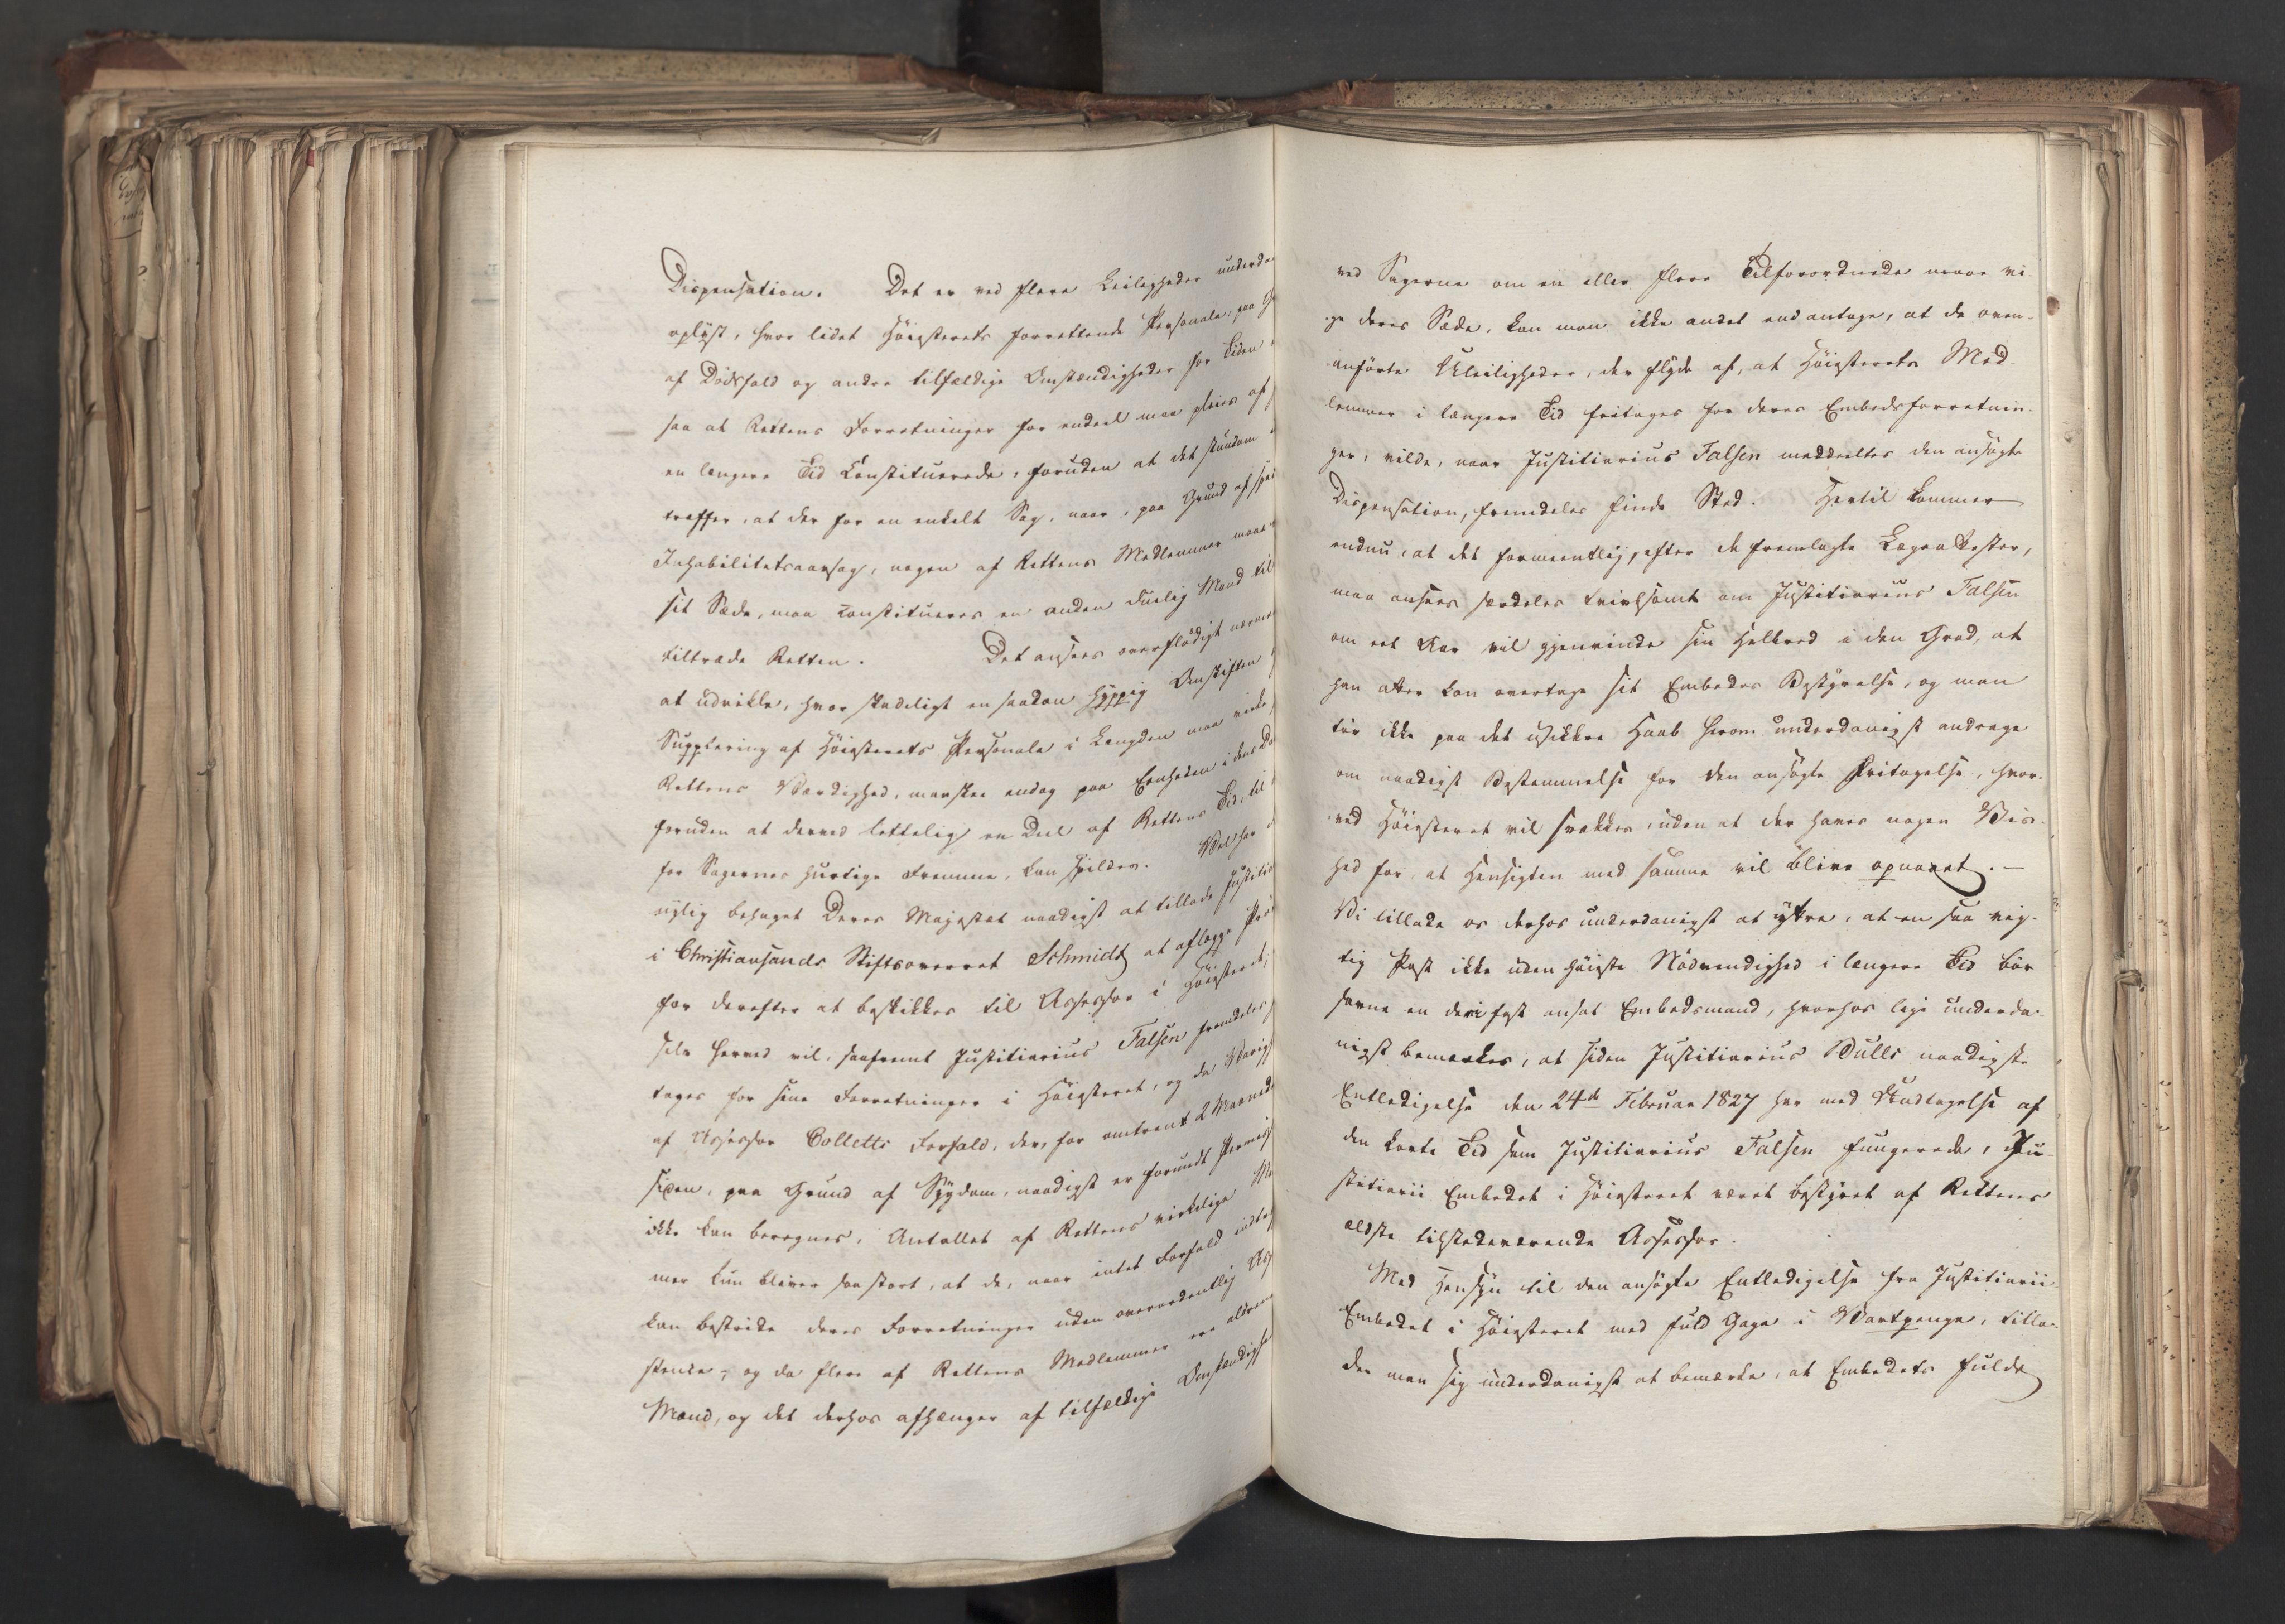 Dispensation. Det er ved flere Leiligheder underda
oplyst, hvor lidet Höiesterets forrettende Personale, paa G
af Dödsfald og andre tilfældige Omstændigheder for Tiden
saa at Rettens Forretninger for endeel maa pleies af
en længere Tid Constituerede, foruden at det stundom
træffer, at der for en enkelt Sag, naar, paa Grund af spec
Inhabilitetsaarsag, nogen af Rettens Medlemmer maae
sit Sæde, maa constitueres en anden duelig Mand til
tiltræde Retten. Det ansees overflödigt nærmere
at udvikle, hvor skadeligt en saadan hyppig Omskiften
Supplering af Höiesterets Personale i Længden maa virke
Rettens Værdighed, maaskee endog paa Eenheden i dens Do
foruden at derved lettelig en Deel af Rettens Tid, til
for Sagernes hurtige Fremme, kan spildes. Vel har
nylig behaget Deres Majestæt naadigst at tillade Justitia
i Christiansands Stiftsoverret Schmidt at aflægge Prö
for derefter at beskikkes til Assessor i Höiesteret,
selv herved vil, saafremt Justitiarius Falsen fremdeles
tages for sine Forretninger i Höiesteret, og da Varig
af Assessor Colletts Forfald, der, for omtrent 2 Maaneder
siden, paa Grund af Sygdom, naadigst er forundt Permiss
ikke kan beregnes, Antallet af Rettens virkelige Me
mer kun bliver saa stort, at de, naar intet Forfald indtræf
kan bestride deres Forretninger uden overordentlig As
stence; og da flere af Rettens Medlemmer ere aldrene
Mænd, og det derhos afhænger af tilfældige Omstændighe
ved Sagerne om en eller flere Tilforordnede maae vi-
ge deres Sæde, kan man ikke andet end antage, at de oven-
anförte Uleiligheder, der flyde af, at Höiesterets Med-
lemmer i længere Tid fritages for deres Embedsforretnin-
ger, vilde, naar Justitiarius Falsen meddeeltes den ansögte
Dispensation, fremdeles finde Sted. Hertil kommer
endnu, at det formeentlig, efter de fremlagte Lægeattester,
maa ansees særdeles tvivlsomt om Justitiarius Falsen
om eet Aar vil gjenvinde sin Helbred i den Grad, at
han atter kan overtage sit Embedes Bestyrelse, og man
tör ikke paa det usikkre Haab herom underdanigst andrage
om naadigst Bestemmelse for den ansögte Fritagelse, hvor-
ved Höiesteret vil svækkes, uden at der haves nogen Vis-
hed for, at Hensigten med samme vil blive opnaaet. —
Vi tillade os derhos underdanigst at yttre, at en saa vig-
tig Post ikke uden höieste Nödvendighed i længere Tid bör
savne en deri fast ansat Embedsmand, hvorhos lige underda-
nigst bemærkes, at siden Justitiarius Bulls naadigste
Entledigelse den 24de Februar 1827 har med Undtagelse af
den korte Tid som Justitiarius Falsen fungerede, Ju-
stitiarii Embedet i Höiesteret været bestyret af Rettens
ældste tilstedeværende Assessor.
Med Hensyn til den ansögte Entledigelse fra Justitiarii
Embedet i Höiesteret med fuld Gage i Vartpenge, tilla-
der man sig underdanigst at bemærke, at Embedets fulde